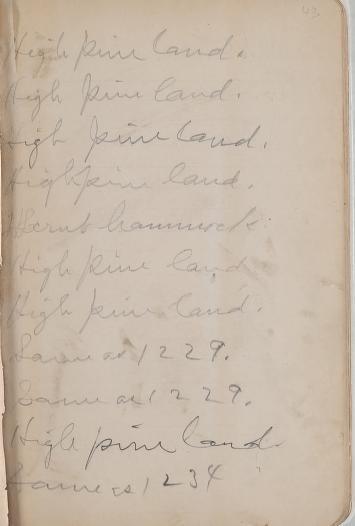 43
High pine land.
High pine land.
High pine land.
High pine land.
Scrub hammock.
High pine land
High pine land.
Same as 1229.
Same as 1229.
High pine land.
Same as 1234